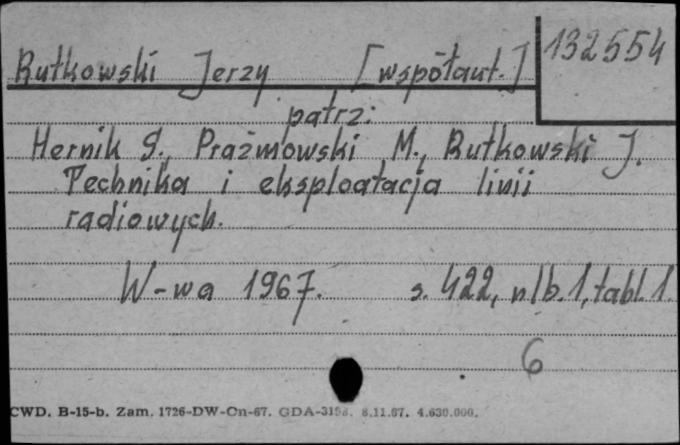 132554
Rutkowski Jerzy [współaut.]
patrz:
Hernik S., Prażmowski M., Rutkowski J.
Technika i eksploatacja linii
radiowych.
W-wa 1967. s. 422, nlb. 1, tabl. 1.
6
CWD. B-15-b. Zam. 1726-DW-Cn-67. GDA-3198. 8.11.67. 4.630.000.